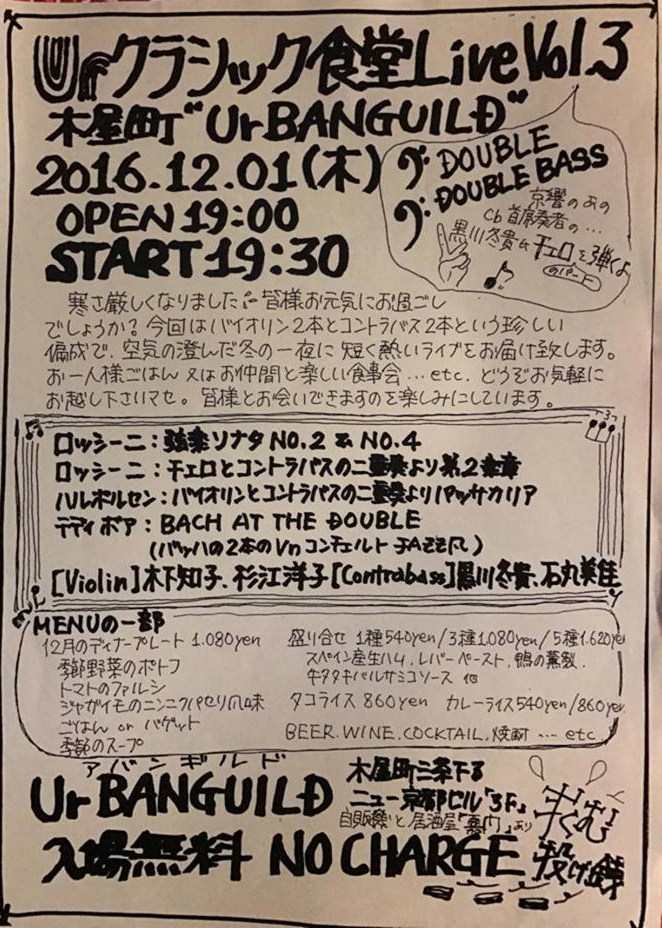 Urクラシック食堂Live Vol.3
木屋町"UrBANGUILD"
2016.12.01(木)
OPEN 19:00
START 19:30
DOUBLE
DOUBLE BASS
京響のあの
Cb首席奏者の…
黒川冬貴がチェロを弾くよ
(のパート)
寒さ厳しくなりましたが皆様お元気にお過ごし
でしょうか?今回はバイオリン2本とコントラバス2本という珍しい
偏成で、空気の澄んだ冬の一夜に短く熱いライブをお届け致します。
お一人様ごはん又はお仲間と楽しい食事会…etc. どうぞお気軽に
お越し下さいマセ。皆様とお会いできますのを楽しみにしています。
ロッシーニ:弦楽ソナタ NO.2 & NO.4
ロッシーニ:チェロとコントラバスの二重奏より第2楽章
ハルボルセン:バイオリンとコントラバスの二重奏よりパッサカリア
テディボア:BACH AT THE DOUBLE
(バッハの2本のVnコンチェルト JAZZ風)
[Violin]木下知子.杉江洋子[Contrabass]黒川冬貴、石丸美佳
MENUの一部
12月のディナープレート 1.080yen
季節野菜のポトフ
トマトのファルシ
ジャガイモのニンニクパセリ風味
ごはん or バゲット
季節のスープ
盛り合せ 1種540yen/3種1.080yen/5種1.620yen
スペイン産生ハム.レバーペースト.鴨の薫製.
牛タタキバルサミコソース 他
タコライス 860yen カレーライス540yen/860yen
BEER.WINE.COCKTAIL.焼酎…etc
アバンギルド
UrBANGUILD
木屋町三条下る
ニュー京都ビル「3F」
自販機と居酒屋「」あり
入場無料 NO CHARGE
投げ銭